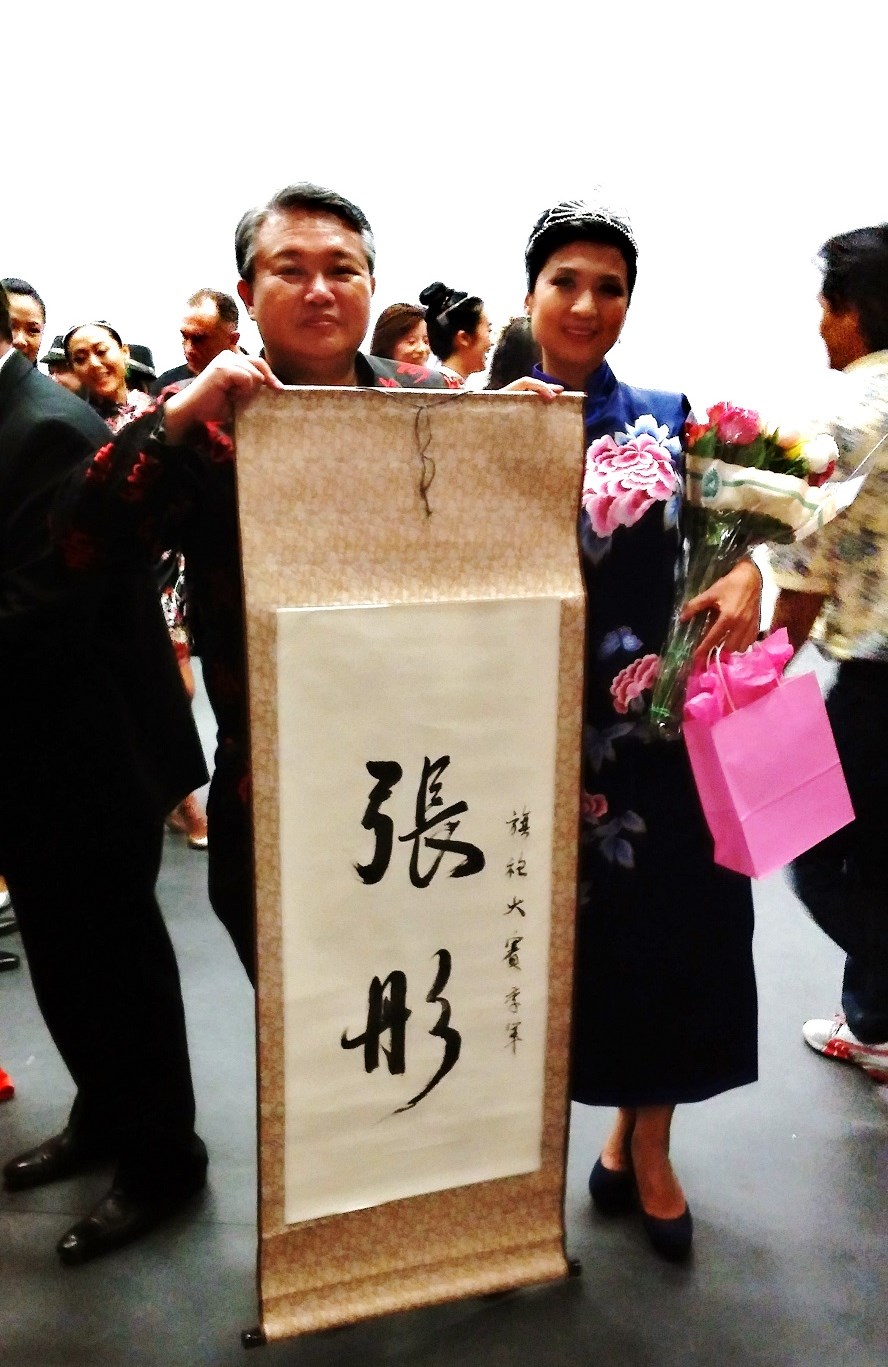 旗袍大賽季軍
張彤